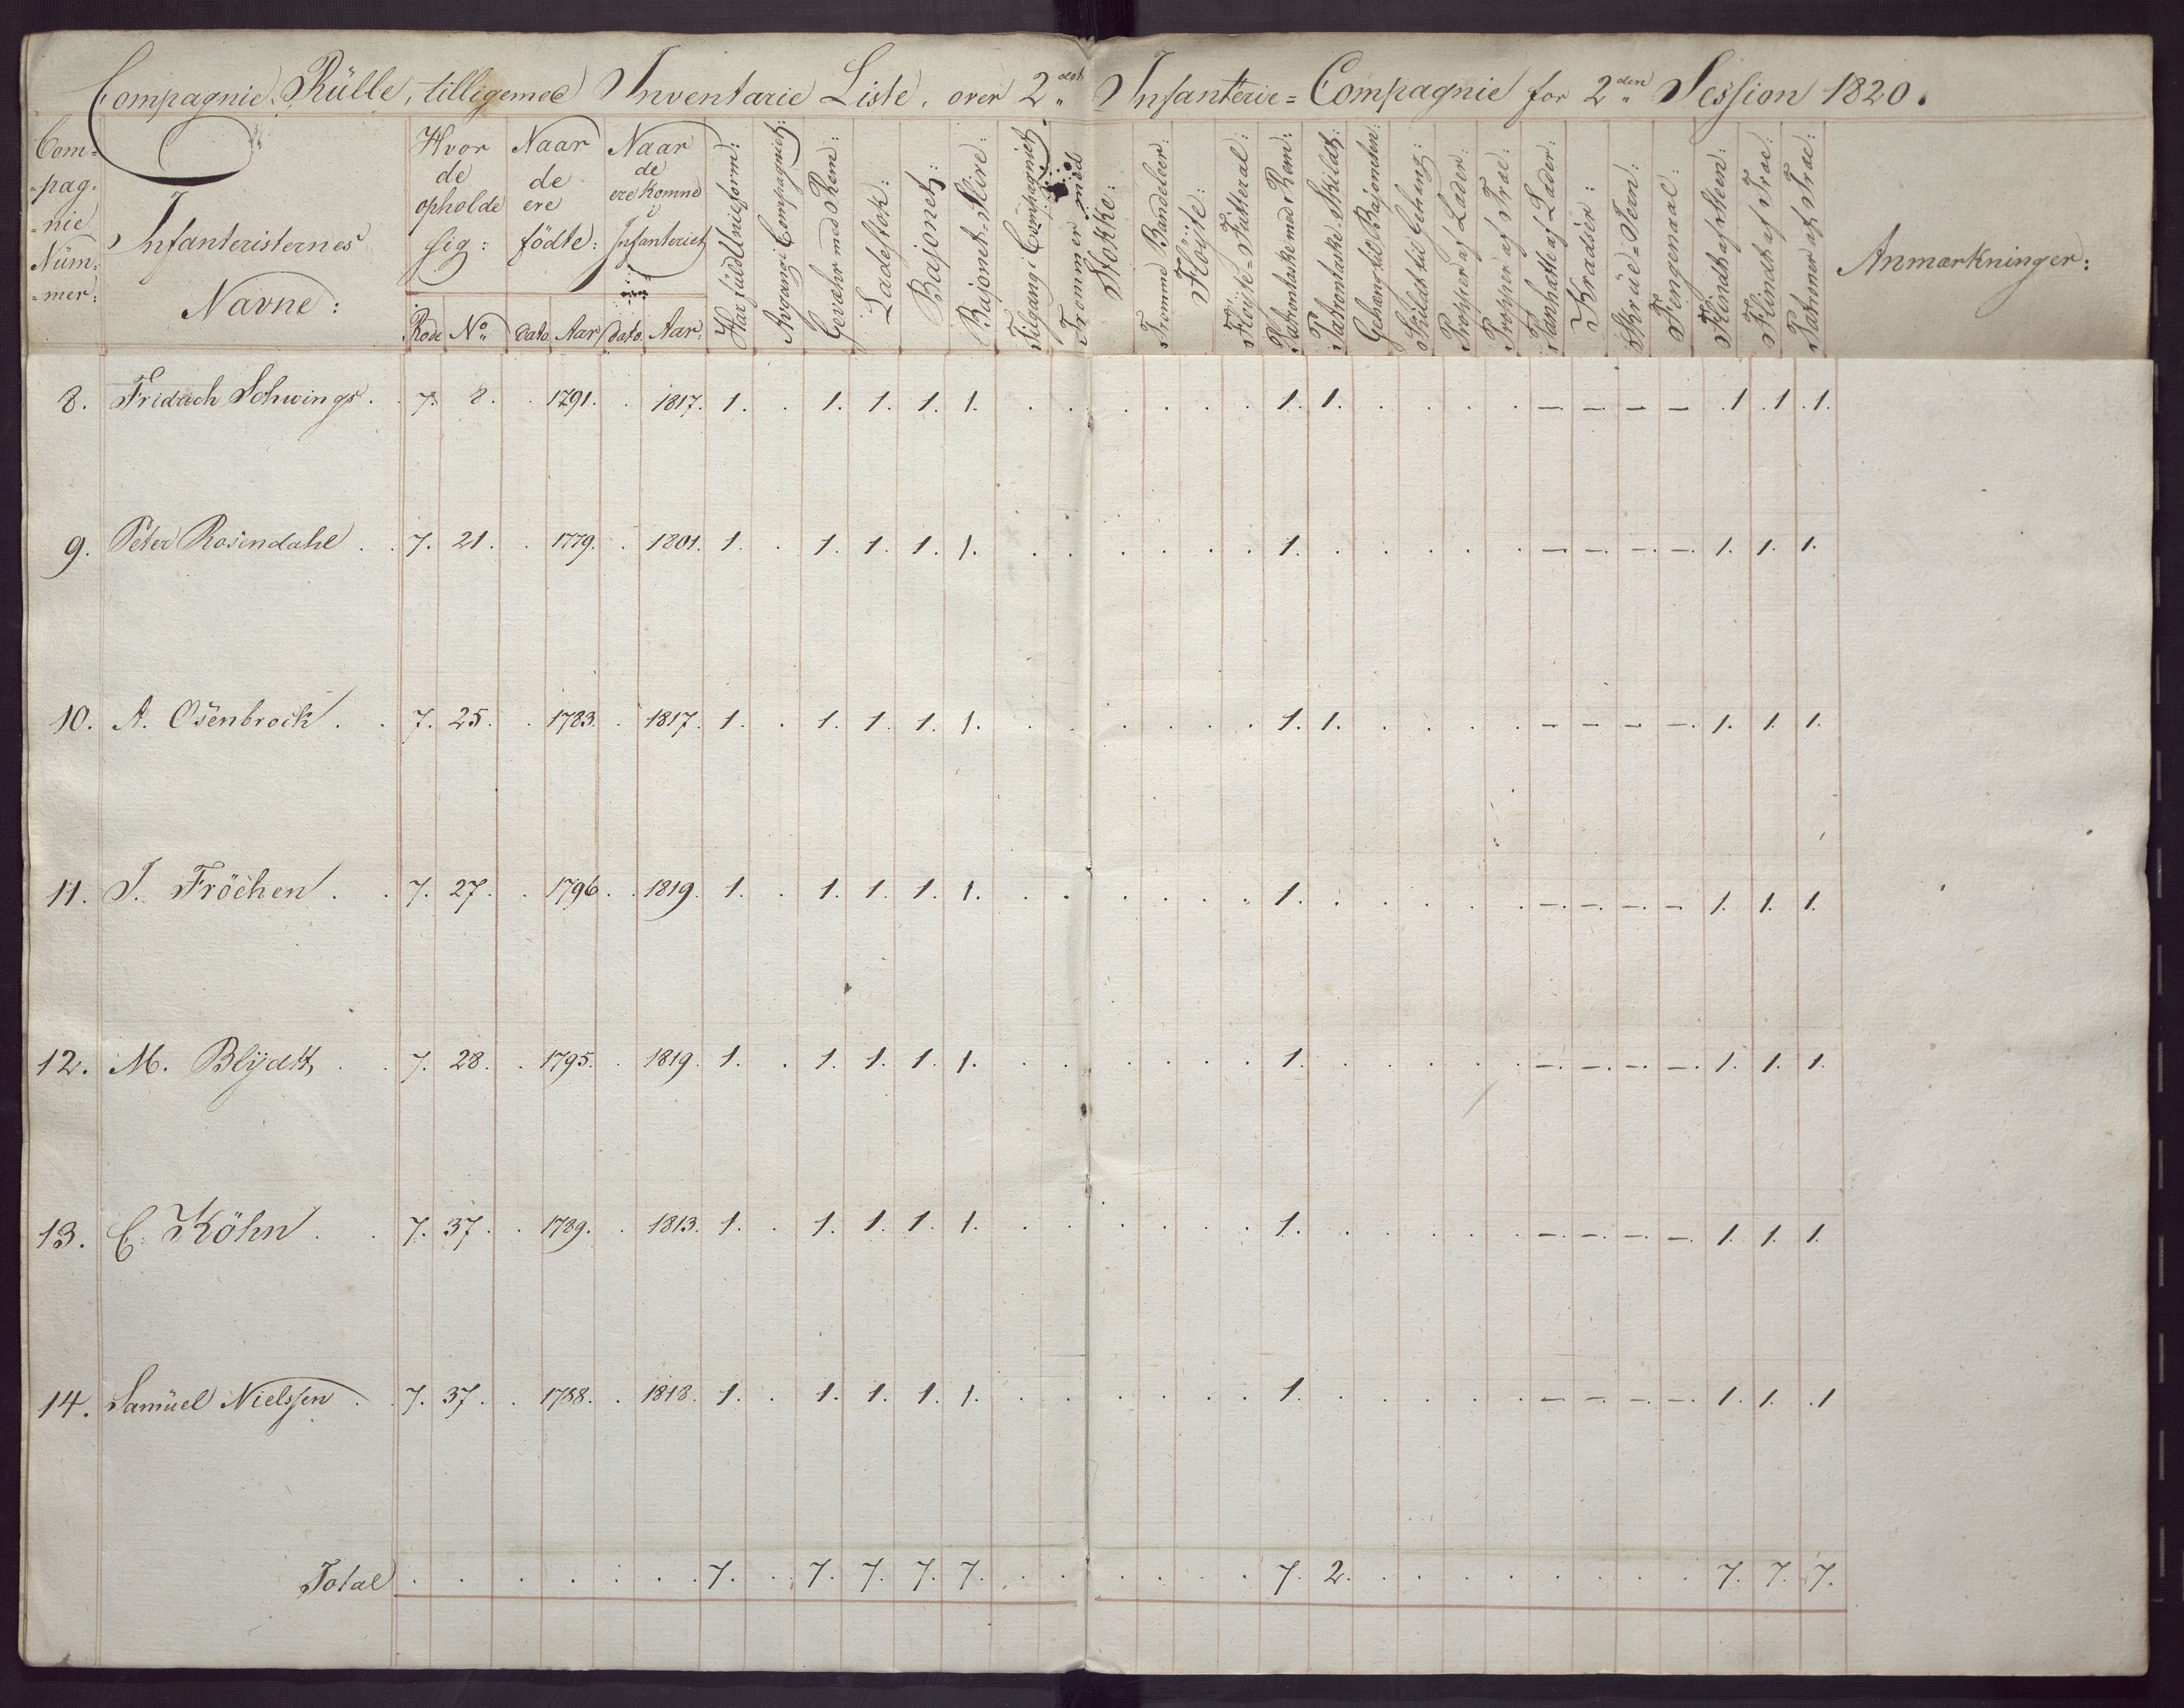 Compagnie Rülle, tilligemed Inventarie Liste, over 2det Infanterie=Compagnie for 2den Session 1820.
Com=
=pag=
=nie
Nüm=
=mer:
Infanteristernes
Navne:
Hvor
de
opholde
sig:
Rode No
Naar
de
ere
födte:
dato Aar
Naar
de
ere komne
i
Infanteriet
dato Aar
Har füld Unieform:
Avgang i Compagniet:
Geviehr med Rem:
Ladestok:
Bajonet:
Bajonet-Skire:
Tilgang i Compagniet
Trommer med
Stokke:
Tromme Bandeleer:
Flöyte:
Flöyte=Fütteral:
Patrontaske med Rem:
Patrontaske-Skildt:
Gehæng til Bajonetten:
Skildt til Gehæng:
Propper af Læder:
Propper af Træ:
Panhatte af Læder:
Kradser:
Skrüe=Jern:
Fengenaal:
Flindt af Steen:
Flindt af Træ:
Patroner af Træ:
Anmærkninger:
8. Fridrich Schwings . . 7. 8. . 1791. . 1817. 1. . 1. 1. 1. 1. . . . . . . 1. 1. . . . . — — — — .1 .1 .1.
9. Peter Rosendahl . . 7. 21. . 1779. . 1801. 1. . 1. 1. 1. 1. . . . . . . 1. . . . . . — —. —. —. 1. 1. 1.
10. A. Osenbrock . . 7. 25. . 1783. . 1817. 1. . 1. 1. 1. 1. . . . . . . 1. 1. . . . . — — — —. 1. 1. 1.
11. J. Fröchen . . 7. 27. . 1796. . 1819. 1. . 1. 1. 1. 1. . . . . . . 1. . . . . . —. —. —. — 1. 1. 1.
12. M. Blÿdt . . 7. 28. . 1795. . 1819. 1. . 1. 1. 1. 1. . . . . . . 1. . . . . . —. —. —. —. 1. 1. 1.
13. C. Köhn . . 7. 37. . 1789. . 1813. 1. . 1. 1. 1. 1. . . . . . . 1. . . . . . —. —. —. —. 1. 1. 1.
14. Samüel Nielssen . . 7. 37. . 1788. . 1818. 1. . 1. 1. 1. 1. . . . . . . 1. . . . . . — —. —. —. 1. 1. .1
Total . . . . . . . 7. . 7. 7. 7. 7. . . . . . . 7. 2. . . . . . . . . 7. 7. 7.